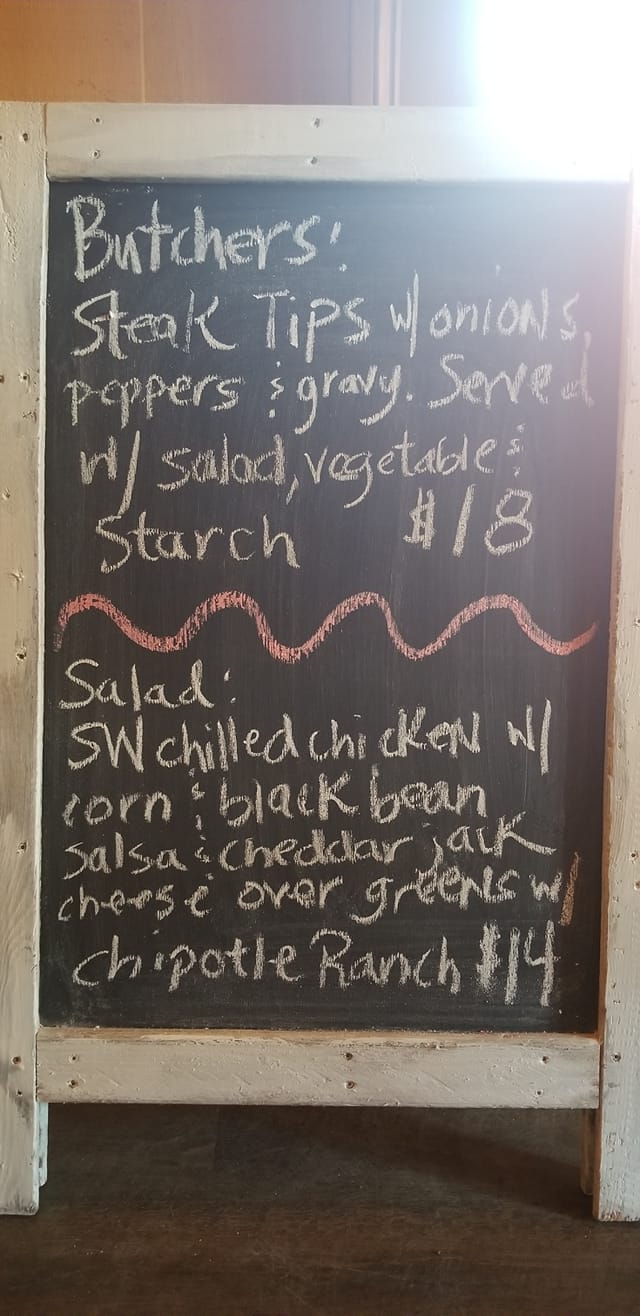 Butchers:
Steak Tips w/ onions,
peppers & gravy. Served
w/ salad, vegetable &
Starch $18
Salad:
SW chilled chicken w/
corn & black bean
salsa & cheddar jack
cheese over greens w/
chipotle Ranch $14